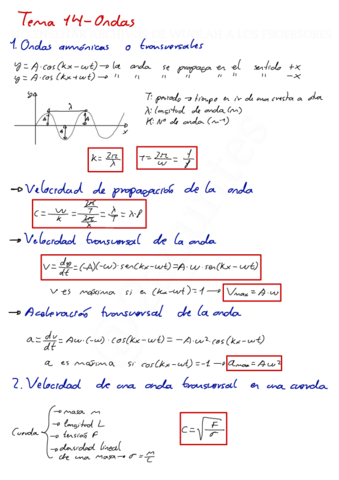 Tema 14-Ondas
1. Ondas armónicas o transversales
y = A·cos(kx-wt) → la onda se propaga en el sentido +x
y = A·cos(kx+wt) → " " " " " " " -x
y
λ
A
A
x
T: periodo → tiempo en ir de una cresta a otra
λ: longitud de onda (m)
K: Nº de onda (m⁻¹)
K = 2π/λ
T = 2π/w = 1/f
→ Velocidad de propagación de la onda
C = w/k = (2π/T)/(2π/λ) = λ/T = λ·f
→ Velocidad transversal de la onda
V = dy/dt = (-A)(-w)·sen(kx-wt) = A·w·sen(kx-wt)
v es máxima si en (kx-wt) = 1 → Vmax = A·w
→ Aceleración transversal de la onda
a = dv/dt = Aw·(-w)·cos(kx-wt) = -A·w²·cos(kx-wt)
a es maxima si cos(kx-wt) = -1 → amax = Aw²
2. Velocidad de una onda transversal en una cuerda
Cuerda
→ masa m
→ longitud L
→ tensión F
→ densidad lineal
de una masa → σ = m/L
C = √(F/σ)